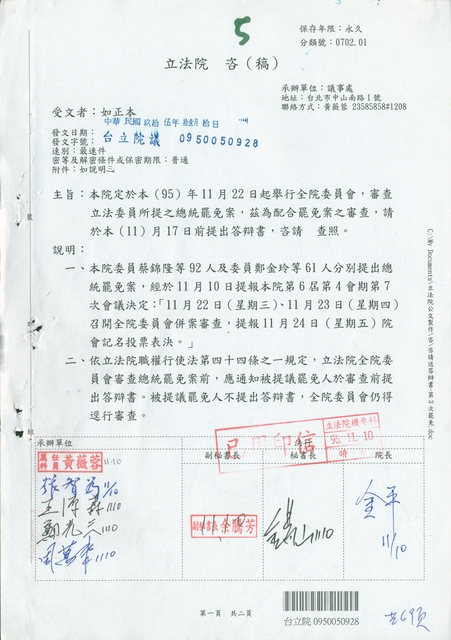 5
保存年限：永久
分類號：0702.01
立法院　咨（稿）
承辦單位：議事處
地址：台北市中山南路1號
聯絡方式：黃薇蓉 23585858#1208
受文者：如正本
發文日期：中華民國玖拾伍年拾壹月拾日
發文字號：台立院議 0950050928
速別：最速件
密等及解密條件或保密期限：普通
附件：如說明三
主旨：本院定於本（95）年11月22日起舉行全院委員會，審查
立法委員所提之總統罷免案，茲為配合罷免案之審查，請
於本（11）月17日前提出答辯書，咨請　查照。
說明：
一、本院委員蔡錦隆等92人及委員鄭金玲等61人分別提出總
統罷免案，經於11月10日提報本院第6屆第4會期第7
次會議決定：「11月22日（星期三）、11月23日（星期四）
召開全院委員會併案審查，提報11月24日（星期五）院
會記名投票表決。」
二、依立法院職權行使法第四十四條之一規定，立法院全院委
員會審查總統罷免案前，應通知被提議罷免人於審查前提
出答辯書。被提議罷免人不提出答辯書，全院委員會仍得
逕行審查。
C:\My Documents\立法院公文製作\咨\咨請送答辯書-第3次罷免.doc
裝
訂
線
承辦單位
副秘書長
秘書長
院長
已用印信
立法院機要科
95.11.10
時
薦任科員 黃薇蓉 11/10
11/10
11/10
11/10
周萬來 11/10
副秘書長 余騰芳
11/10
金平
11/10
第一頁　共二頁
台立院 0950050928
共69頁